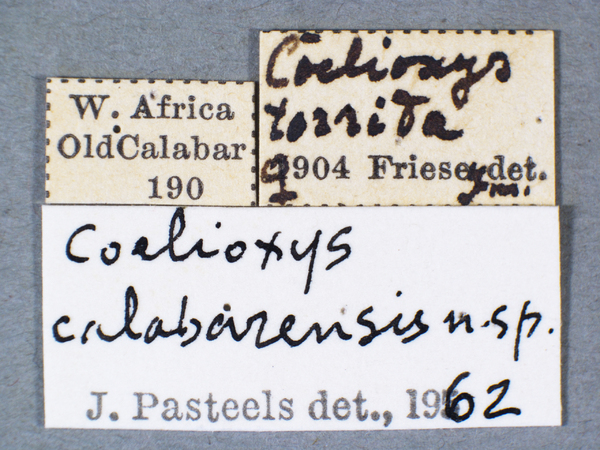 W. Africa
Old Calabar
190
Coelioxys
torrida
♀ 1904 Friese det.
Coelioxys
calabarensis n.sp.
J. Pasteels det., 1962